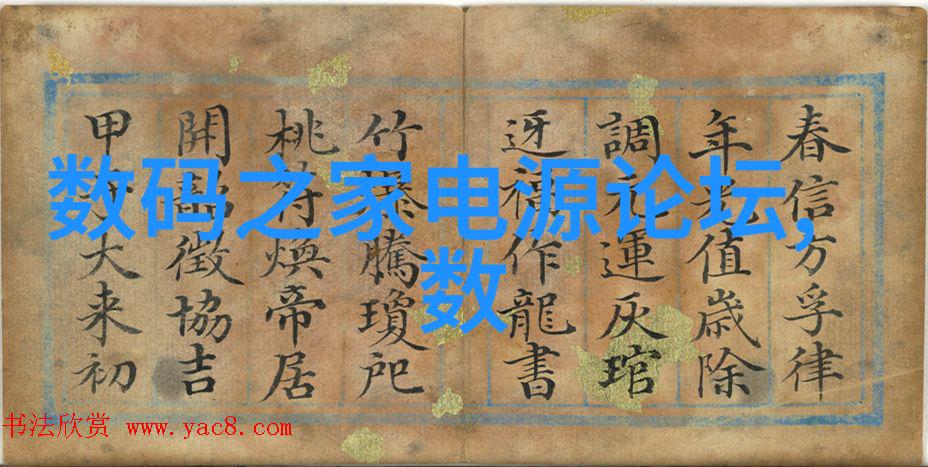 春信方孚律
年值歲除
調元運灰琯
迓福作龍書
竹爆騰瓊戺
桃符煥帝居
開韶徵協吉
甲大来初
数码之家电源论坛,
数
书法欣赏 www.yac8.com